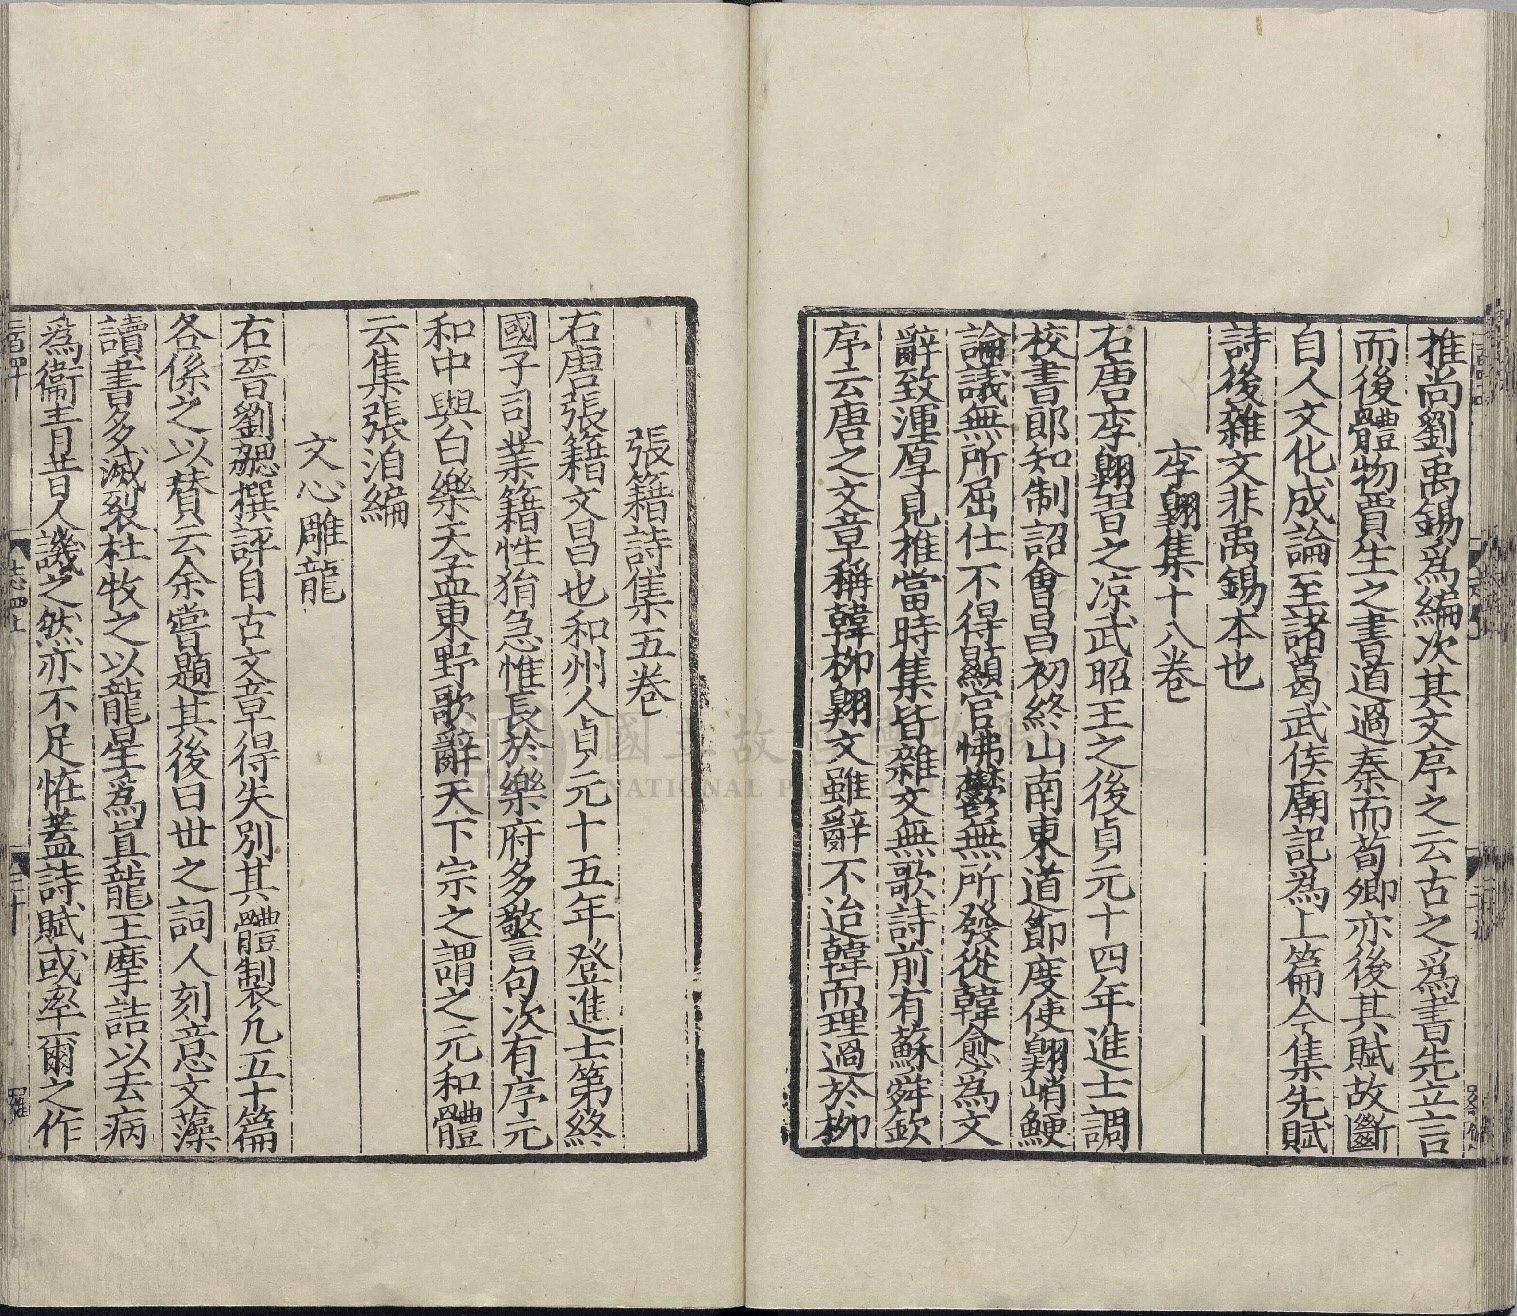 推尚劉禹錫爲編次其文序之云古之爲書先立言
而後體物賈生之書道過秦而荀卿亦後其賦故斷
自人文化成論至諸葛武侯廟記爲上篇今集先賦
詩後雜文非禹錫本也
李翺集十八卷
右唐李翺習之凉武昭王之後貞元十四年進士調
校書郎知制詔會昌初終山南東道節度使翺峭鯁
論議無所屈仕不得顯官怫鬱無所發從韓愈爲文
辭致渾厚見推當時集皆雜文無歌詩前有蘇舜欽
序云唐之文章稱韓柳翺文雖辭不迨韓而理過於柳
張籍詩集五卷
右唐張籍文昌也和州人貞元十五年登進士第終
國子司業籍性狷急惟長於樂府多警句次有序元
和中與白樂天孟東野歌辭天下宗之謂之元和體
云集張洎編
文心雕龍
右晉劉勰撰評自古文章得失别其體製凢五十篇
各係之以賛云余嘗題其後曰世之詞人刻意文藻
讀書多滅裂杜牧之以龍星爲眞龍王摩詰以去病
爲衞青昔人譏之然亦不足恠蓋詩賦或率爾之作
志四上
三十
國立故宮博物院
NATIONAL PALACE MUSEUM